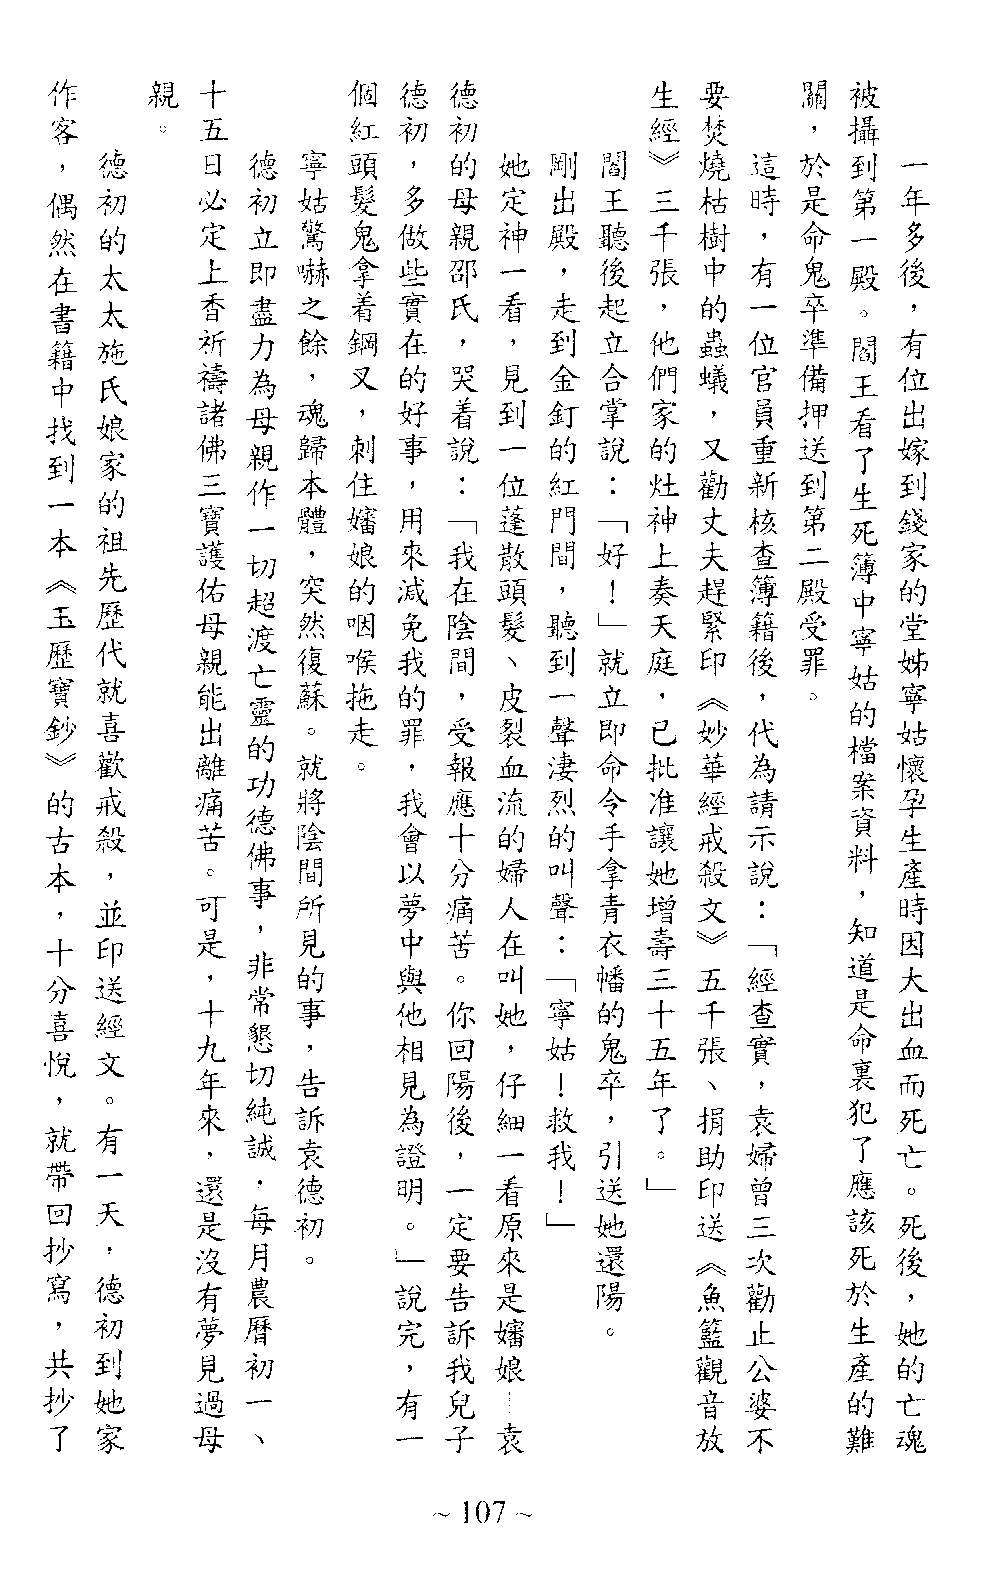 一年多後，有位出嫁到錢家的堂姊寧姑懷孕生產時因大出血而死亡。死後，她的亡魂
被攝到第一殿。閻王看了生死簿中寧姑的檔案資料，知道是命裏犯了應該死於生產的難
關，於是命鬼卒準備押送到第二殿受罪。
這時，有一位官員重新核查簿籍後，代為請示說：「經查實，袁婦曾三次勸止公婆不
要焚燒枯樹中的蟲蟻，又勸丈夫趕緊印《妙華經戒殺文》五千張、捐助印送《魚籃觀音放
生經》三千張，他們家的灶神上奏天庭，已批准讓她增壽三十五年了。」
閻王聽後起立合掌說：「好！」就立即命令手拿青衣幡的鬼卒，引送她還陽。
剛出殿，走到金釘的紅門間，聽到一聲淒烈的叫聲：「寧姑！救我！」
她定神一看，見到一位蓬散頭髮、皮裂血流的婦人在叫她，仔細一看原來是嬸娘─袁
德初的母親邵氏，哭着說：「我在陰間，受報應十分痛苦。你回陽後，一定要告訴我兒子
德初，多做些實在的好事，用來減免我的罪，我會以夢中與他相見為證明。」說完，有一
個紅頭髮鬼拿着鋼叉，刺住嬸娘的咽喉拖走。
寧姑驚嚇之餘，魂歸本體，突然復蘇。就將陰間所見的事，告訴袁德初。
德初立即盡力為母親作一切超渡亡靈的功德佛事，非常懇切純誠，每月農曆初一、
十五日必定上香祈禱諸佛三寶護佑母親能出離痛苦。可是，十九年來，還是沒有夢見過母
親。
德初的太太施氏娘家的祖先歷代就喜歡戒殺，並印送經文。有一天，德初到她家
作客，偶然在書籍中找到一本《玉歷寶鈔》的古本，十分喜悅，就帶回抄寫，共抄了
~ 107 ~